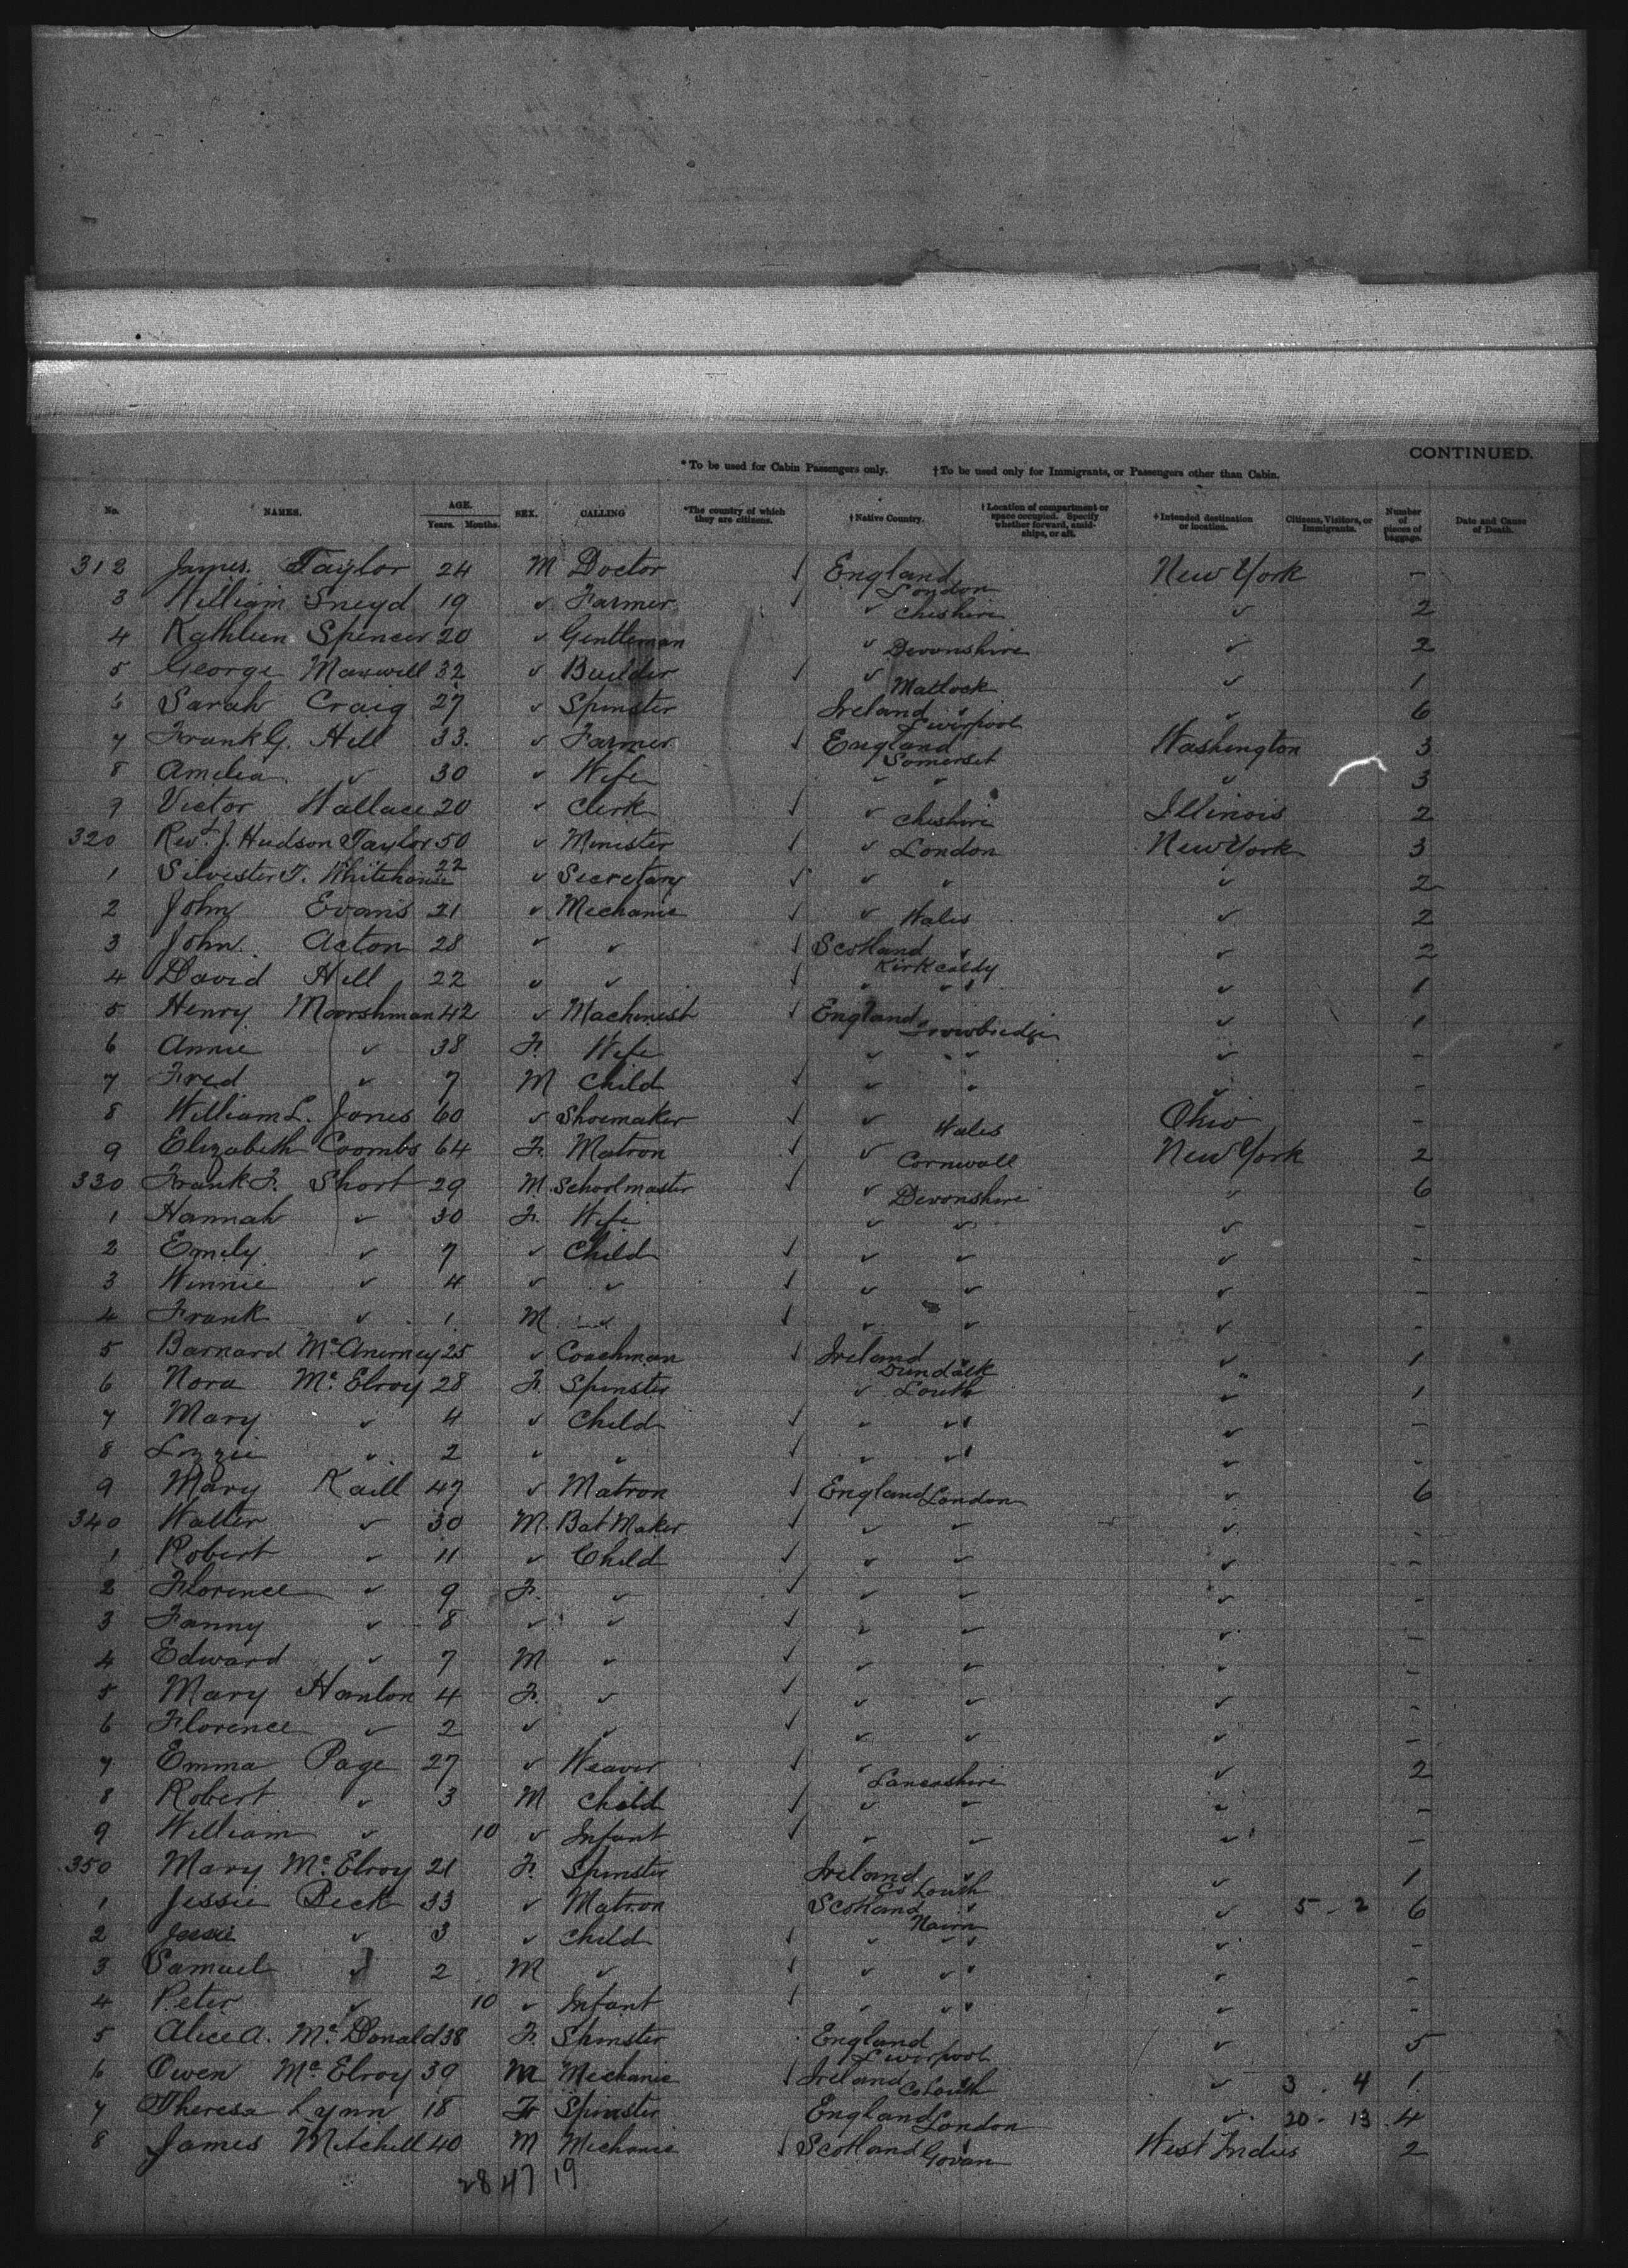 CONTINUED.
*To be used for Cabin Passengers only. †To be used only for Immigrants, or Passengers other than Cabin.
No. NAMES. AGE. Years. Months. SEX. CALLING *The country of which they are citizens. †Native Country. †Location of compartment or space occupied. Specify whether forward, amidships, or aft. †Intended destination or location. Citizens, Visitors, or Immigrants. Number of pieces of baggage. Date and Cause of Death.
312 James Taylor 24 M Doctor England London New York -
3 William Sneyd 19 " Farmer " Cheshire " 2
4 Kathleen Spencer 20 " Gentleman " Devonshire " 2
5 George Maxwell 32 " Builder " Matlock " 1
6 Sarah Craig 27 " Spinster Ireland " Liverpool " 6
7 Frank G. Hill 33 " Farmer England Somerset Washington 3
8 Amelia " 30 " Wife " " " 3
9 Victor Wallace 20 " Clerk " Cheshire Illinois 2
320 Revd J. Hudson Taylor 50 " Minister " London New York 3
1 Silvester T. Whitehouse 22 " Secretary " " " 2
2 John Evans 21 " Mechanic " Wales " 2
3 John Acton 28 " " Scotland " Kirkcaldy " 2
4 David Hill 22 " " " " " 1
5 Henry Moorshman 42 " Machinist England Trowbridge " 1
6 Annie " 38 F. Wife " " " -
7 Fred " 7 M Child " " " -
8 William L. Jones 60 " Shoemaker " Wales Ohio -
9 Elizabeth Coombs 64 F. Matron " Cornwall New York 2
330 Frank F. Short 29 M. Schoolmaster " Devonshire " 6
1 Hannah " 30 F. Wife " " " -
2 Emily " 7 " Child " " " -
3 Winnie " 4 " " " " " -
4 Frank " 1 M " " " " -
5 Barnard McAnerney 25 " Coachman Ireland Dundalk " 1
6 Nora McElroy 28 F. Spinster " Louth " 1
7 Mary " 4 " Child " " " -
8 Lizzie " 2 " " " " " -
9 Mary Kaill 47 " Matron England London " 6
340 Walter " 30 M. Bat Maker " " " -
1 Robert " 11 " Child " " " -
2 Florence " 9 F. " " " " -
3 Fanny " 8 " " " " " -
4 Edward " 7 M " " " " -
5 Mary Hanlon 4 F. " " " " -
6 Florence " 2 " " " " " -
7 Emma Page 27 " Weaver " Lancashire " 2
8 Robert " 3 M Child " " " -
9 William " 10 " Infant " " " -
350 Mary McElroy 21 F. Spinster Ireland Co Louth " 1
1 Jessie Beck 33 " Matron Scotland Nairn " 5 - 2 6
2 Jessie " 3 " Child " " " -
3 Samuel " 2 M " " " " -
4 Peter " 10 " Infant " " " -
5 Alice A. McDonald 38 F. Spinster England Liverpool " 5
6 Owen McElroy 39 M Mechanic Ireland Co Louth " 3 . 4 1
7 Theresa Lynn 18 F Spinster England London " 20 - 13 4
8 James Mitchell 40 M Mechanic Scotland Govan West Indies 2
28 47 19